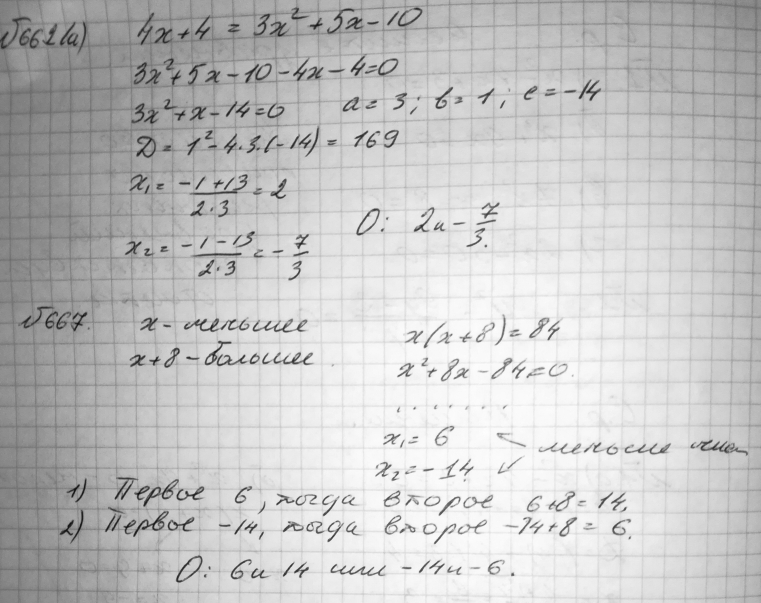 №662(а) 4x+4 = 3x²+5x-10
3x²+5x-10-4x-4=0
3x²+x-14=0 a=3; b=1; c=-14
D = 1²-4·3·(-14) = 169
x₁ = (-1+13)/(2·3) = 2
x₂ = (-1-13)/(2·3) = -7/3
О: 2 и -7/3.
№667. x - меньшее
x+8 - большее.
x(x+8)=84
x²+8x-84=0.
.......
x₁=6
x₂=-14
меньшие
1) Первое 6, тогда второе 6+8=14.
2) Первое -14, тогда второе -14+8= 6.
О: 6 и 14 или -14 и -6.